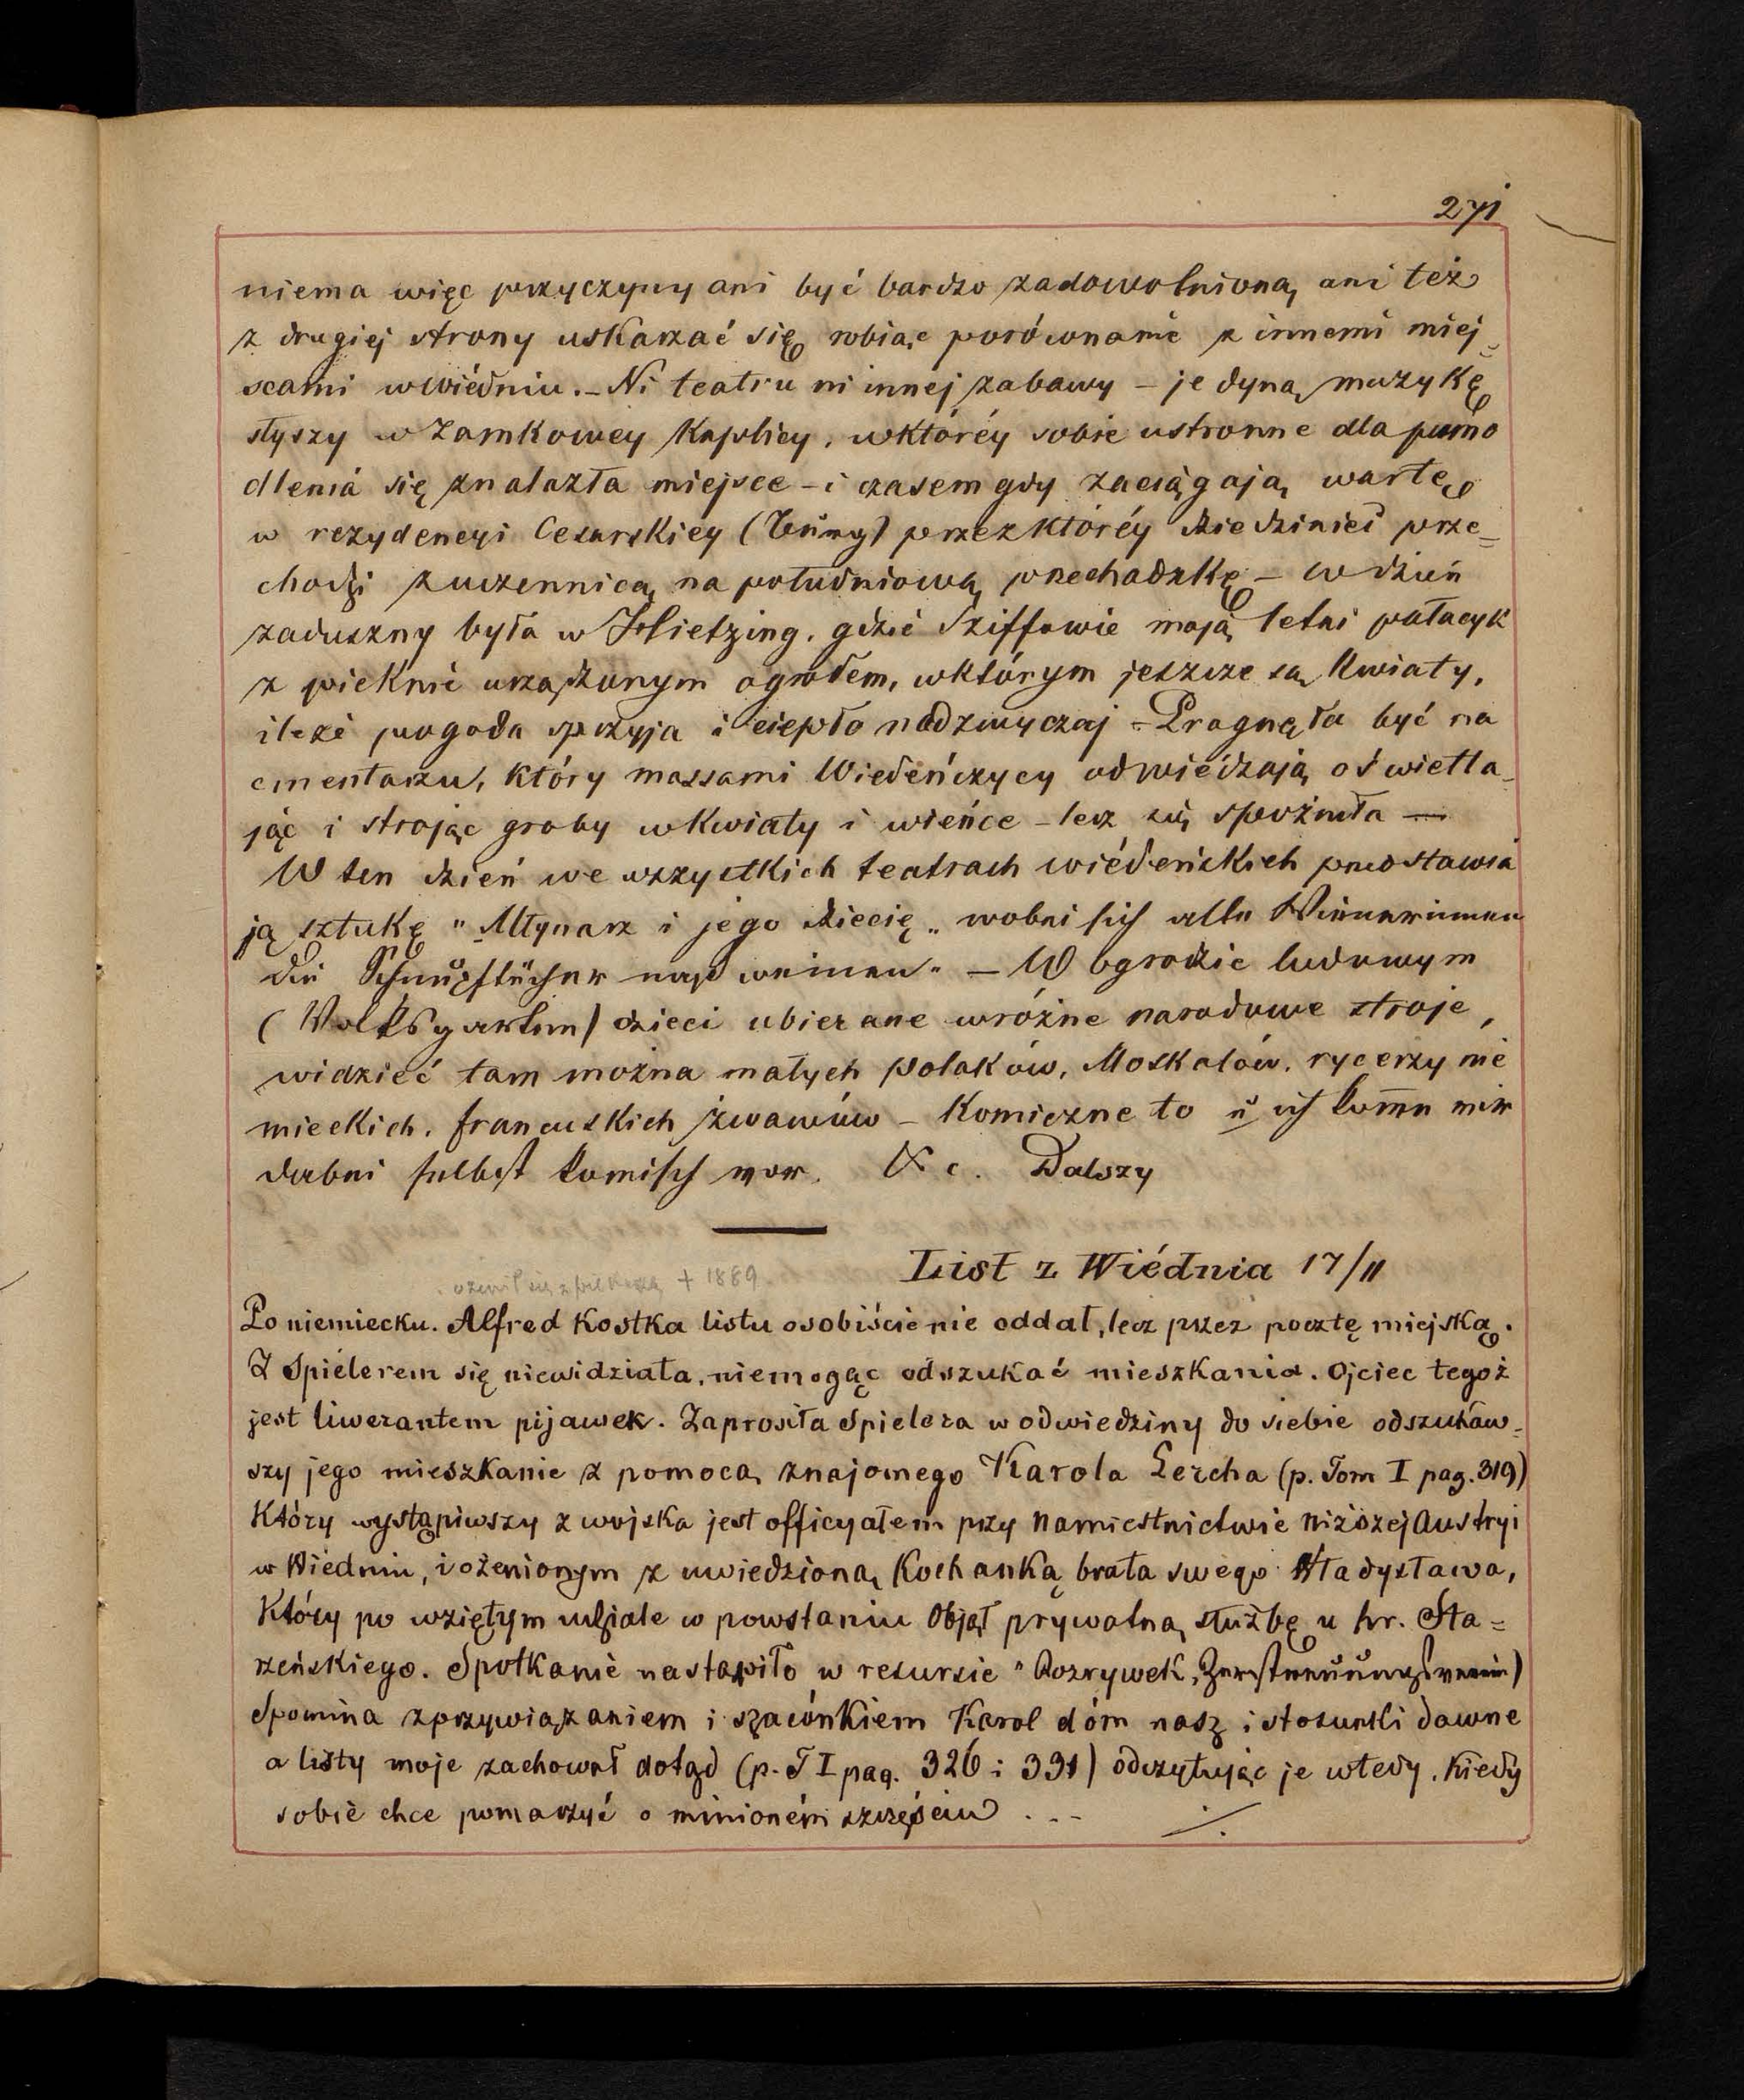 271
niema więc przyczyny ani być bardzo zadowolnioną, ani też
z drugiej strony uskarzać się, robiąc porównanie z innemi miej=
scami w Wiédniu. – Ni teatru ni innej zabawy – jedyną muzykę
słyszy w Zamkowey Kaplicy, w któréy sobie ustronne dla pomo
dlenia się znalazła miejsce – i czasem gdy zaciągają wartę
w rezydencyi Cesarskiey (Burg) przez któréy dziedziniec prze=
chodzi z uczennicą na południową przechadzkę – W dzień
zaduszny była w Hietzing, gdzie Sziffowie mają letni pałacyk
z pieknie urządzonym ogrodem, w którym jeszcze są Kwiaty,
ileże pogoda sprzyja i ciepło nadzwyczaj – Pragnęła być na
cmentarzu, który massami Wiedeńczycy odwiédzają oświetla-
jąc i strojąc groby w Kwiaty i wieńce – lecz się spoźniła —
W ten dzień we wszystkich teatrach wiédeńskich przedstawia
ją sztukę "Młynarz i jego dziecię" wobei sich alle Wienerinnen
die Schnupftücher naß weinen" – W Ogrodzie ludowym
(Volksgarten) dzieci ubierane w różne narodowe stroje,
widzieć tam można małych polaków, Moskalów, rycerzy nie
mieckich, francuskich żwawów – Komiczne to u ich komm mir
dabei selbst komisch vor. &c. Dalszy
List z Wiédnia 17/11
ożenił się z + 1889.
Po niemiecku. Alfred Kostka listu osobiście nie oddał, lecz przez pocztę miejską.
Z Spielerem się niewidziała, niemogąc odszukać mieszkania. Ojciec tegoż
jest liwerantem pijawek. Zaprosiła Spielera w odwiedziny do siebie odszukaw-
szy jego mieszkanie z pomocą znajomego Karola Lercha (p. Tom I pag. 319)
Który wystąpiwszy z wojska jest officyałem przy Namiestnictwie niższej Austryi
w Wiedniu, i ożenionym z uwiedzioną Kochanką brata swego Władysława,
Który po wziętym udziale w powstaniu Objął prywatną służbę u hr. Sta=
rzeńskiego. Spotkanie nastąpiło w resursie "Rozrywek, Zerstreuungsverein)
Spomina z przywiązaniem i szacónkiem Karol dóm nasz i stosunki dawne
a listy moje zachował dotąd (p. T I pag. 326 i 331) odczytując je wtedy, Kiedy
sobie chce pomarzyć o minioném szczęściu ...